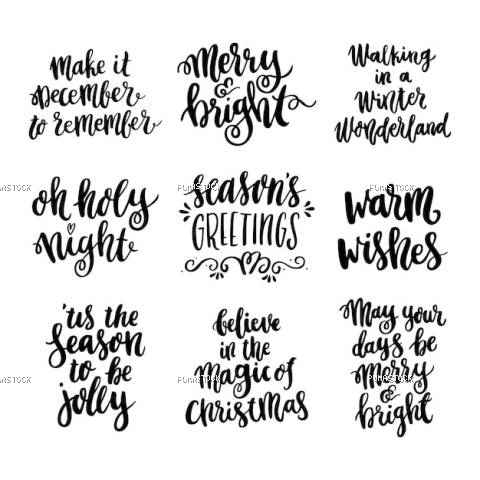 Make it
December
to remember
Merry
&
bright
Walking
in a
Winter
Wonderland
oh holy
night
season's
GREETINGS
warm
wishes
'tis the
season
to be
jolly
believe
in the
Magic of
Christmas
May your
days be
Merry
&
bright
FUNKSTOCK